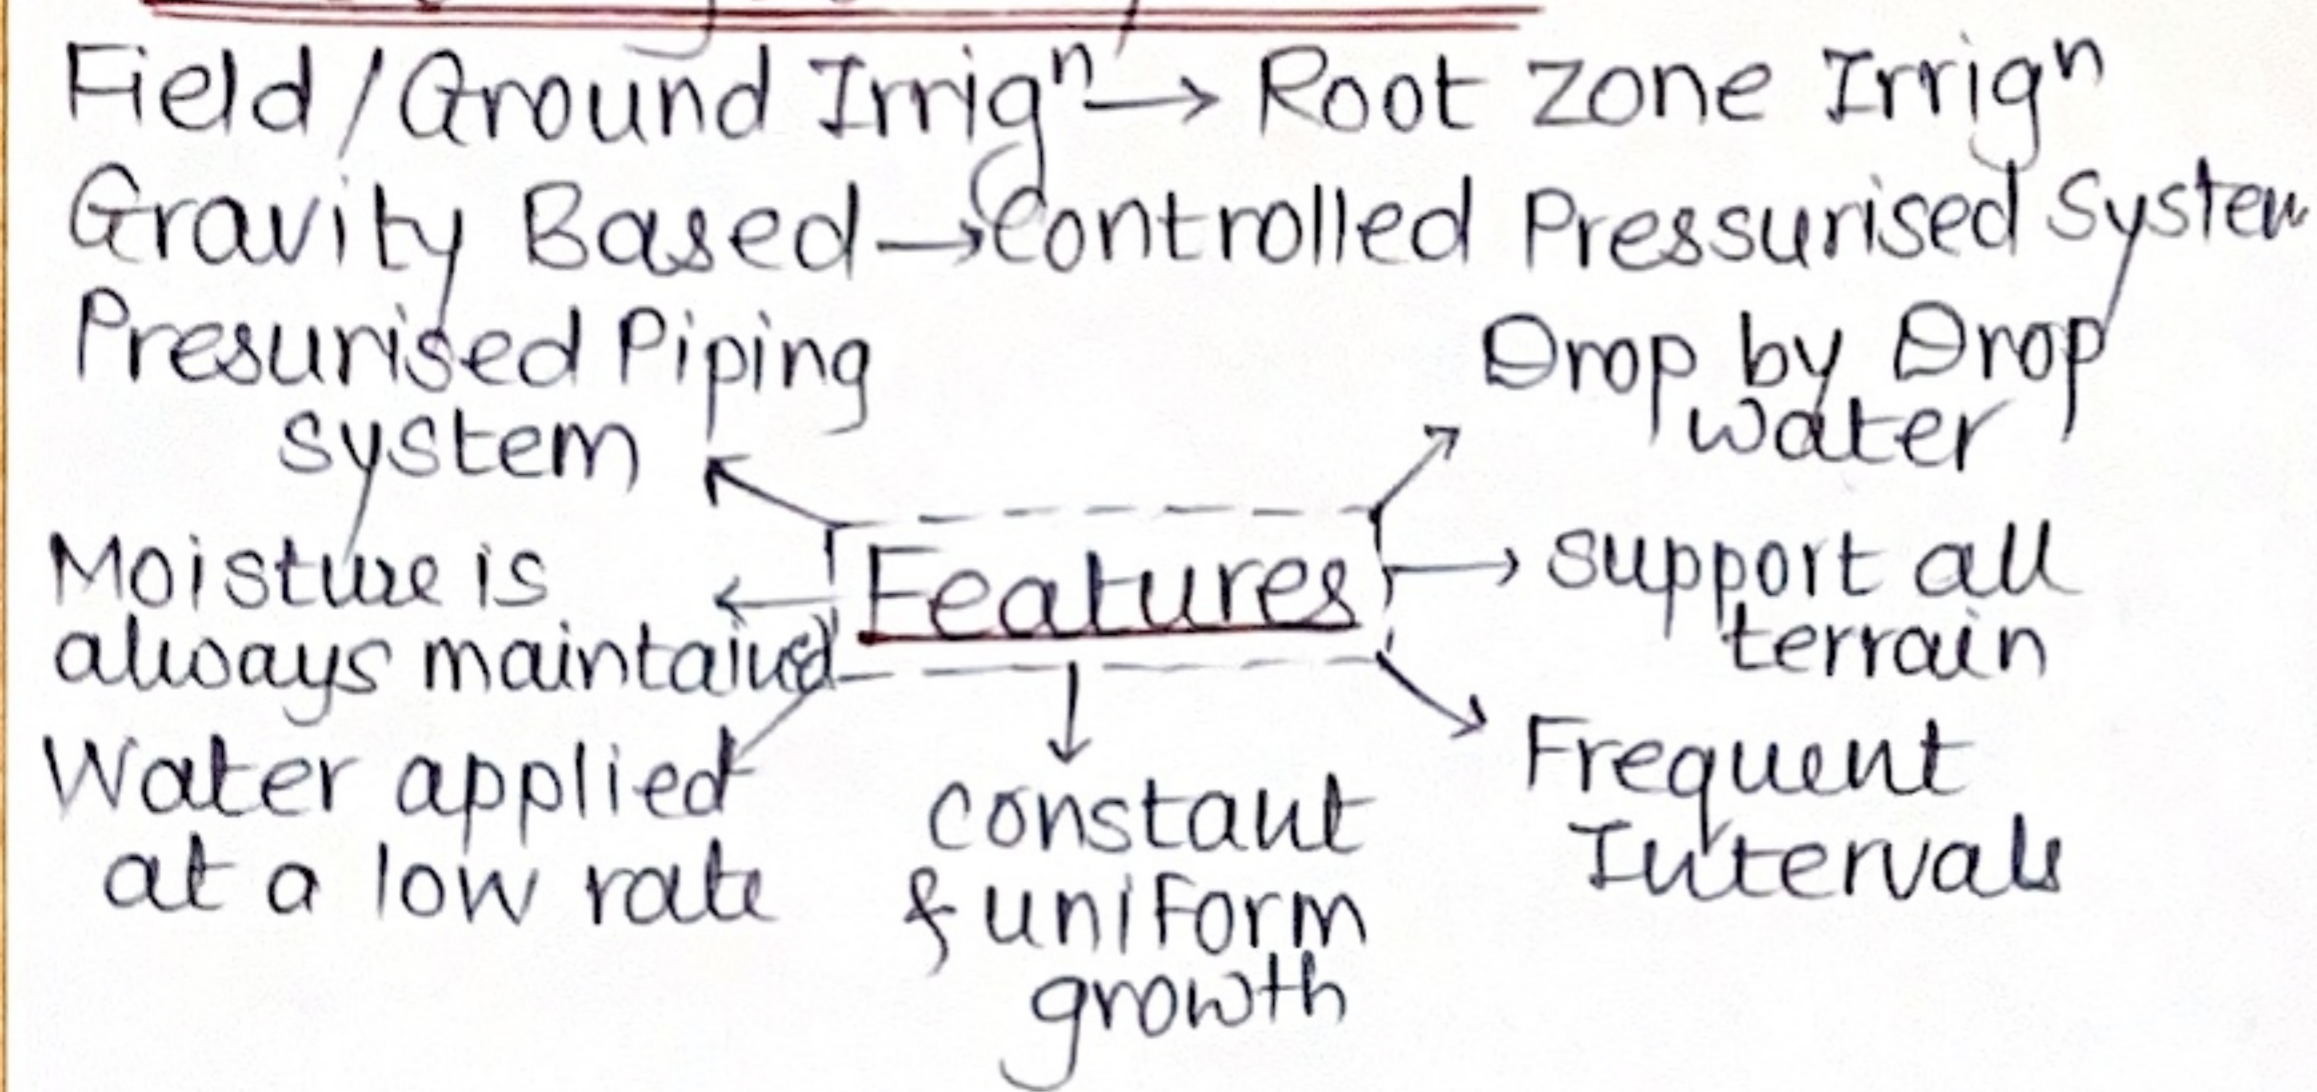 Field / Ground Irrigⁿ → Root zone Irrigⁿ
Gravity Based → Controlled Pressurised System
Presurised Piping
system
Drop by Drop
water
Features
Moisture is
always maintained
support all
terrain
Water applied
at a low rate
constant
& uniform
growth
Frequent
Intervals